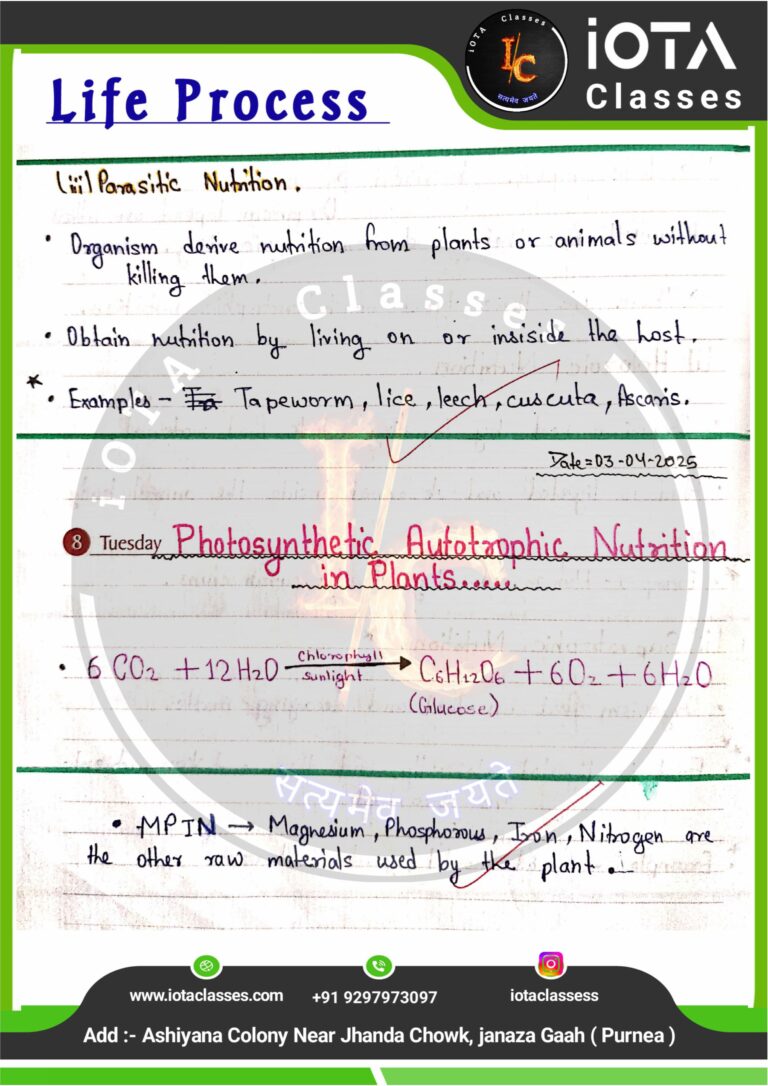 iOTA Classes
I/C
सत्यमेव जयते
iOTA
Classes
Life Process
(iii) Parasitic Nutrition.
• Organism derive nutrition from plants or animals without
killing them.
• Obtain nutrition by living on or insiside the host.
* • Examples - Tapeworm, lice, leech, cuscuta, Ascaris.
Date=03-04-2025
8 Tuesday Photosynthetic Autotrophic Nutrition
in Plants......
• 6CO₂ + 12H₂O Chlorophyll sunlight → C₆H₁₂O₆ + 6O₂ + 6H₂O
(Glucose)
• MPIN → Magnesium, Phosphorous, Iron, Nitrogen are
the other raw materials used by the plant.
iOTA Classes
I/C
सत्यमेव जयते
www.iotaclasses.com
+91 9297973097
iotaclassess
Add :- Ashiyana Colony Near Jhanda Chowk, janaza Gaah ( Purnea )